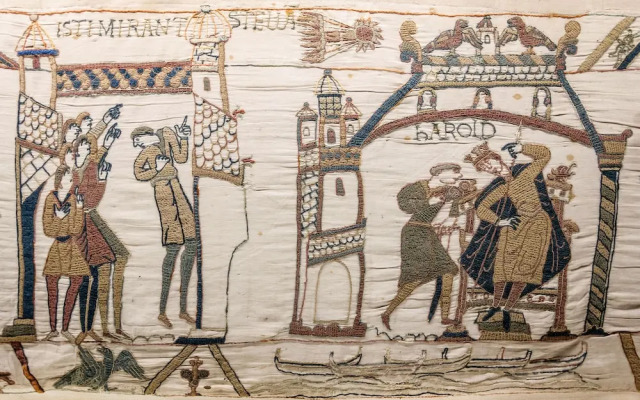 ISTI MIRANT STELLA
hAROLD